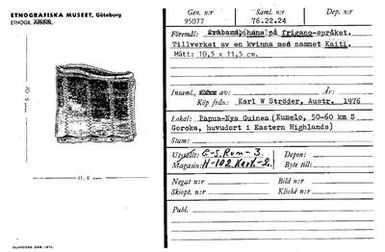 ETNOGRAFISKA MUSEET, Göteborg
10.5
11.5 cm
Gen. n:r
95077
Saml. n:r
76.22.24
Dep. n:r
Föremål: på frigano-språket.
Tillverket av en kvinna med namnet Kaiti.
Mått: 10,5 x 11,5 cm.
Insaml. av
Köp från: Karl W Ströder, Austr. 1976
Lokal: Papua-Nya Guinea (Kumelo, 50-60 km S
Goroka, huvudort i Eastern Highlands)
Stam:
Utställt: E-S. Rum-3
Magasin: H-102. Kart.-2.
Depon:
Byte till:
Negat n:r
Skiopt. n:r
Bild n:r
Kliché n:r
Publ.